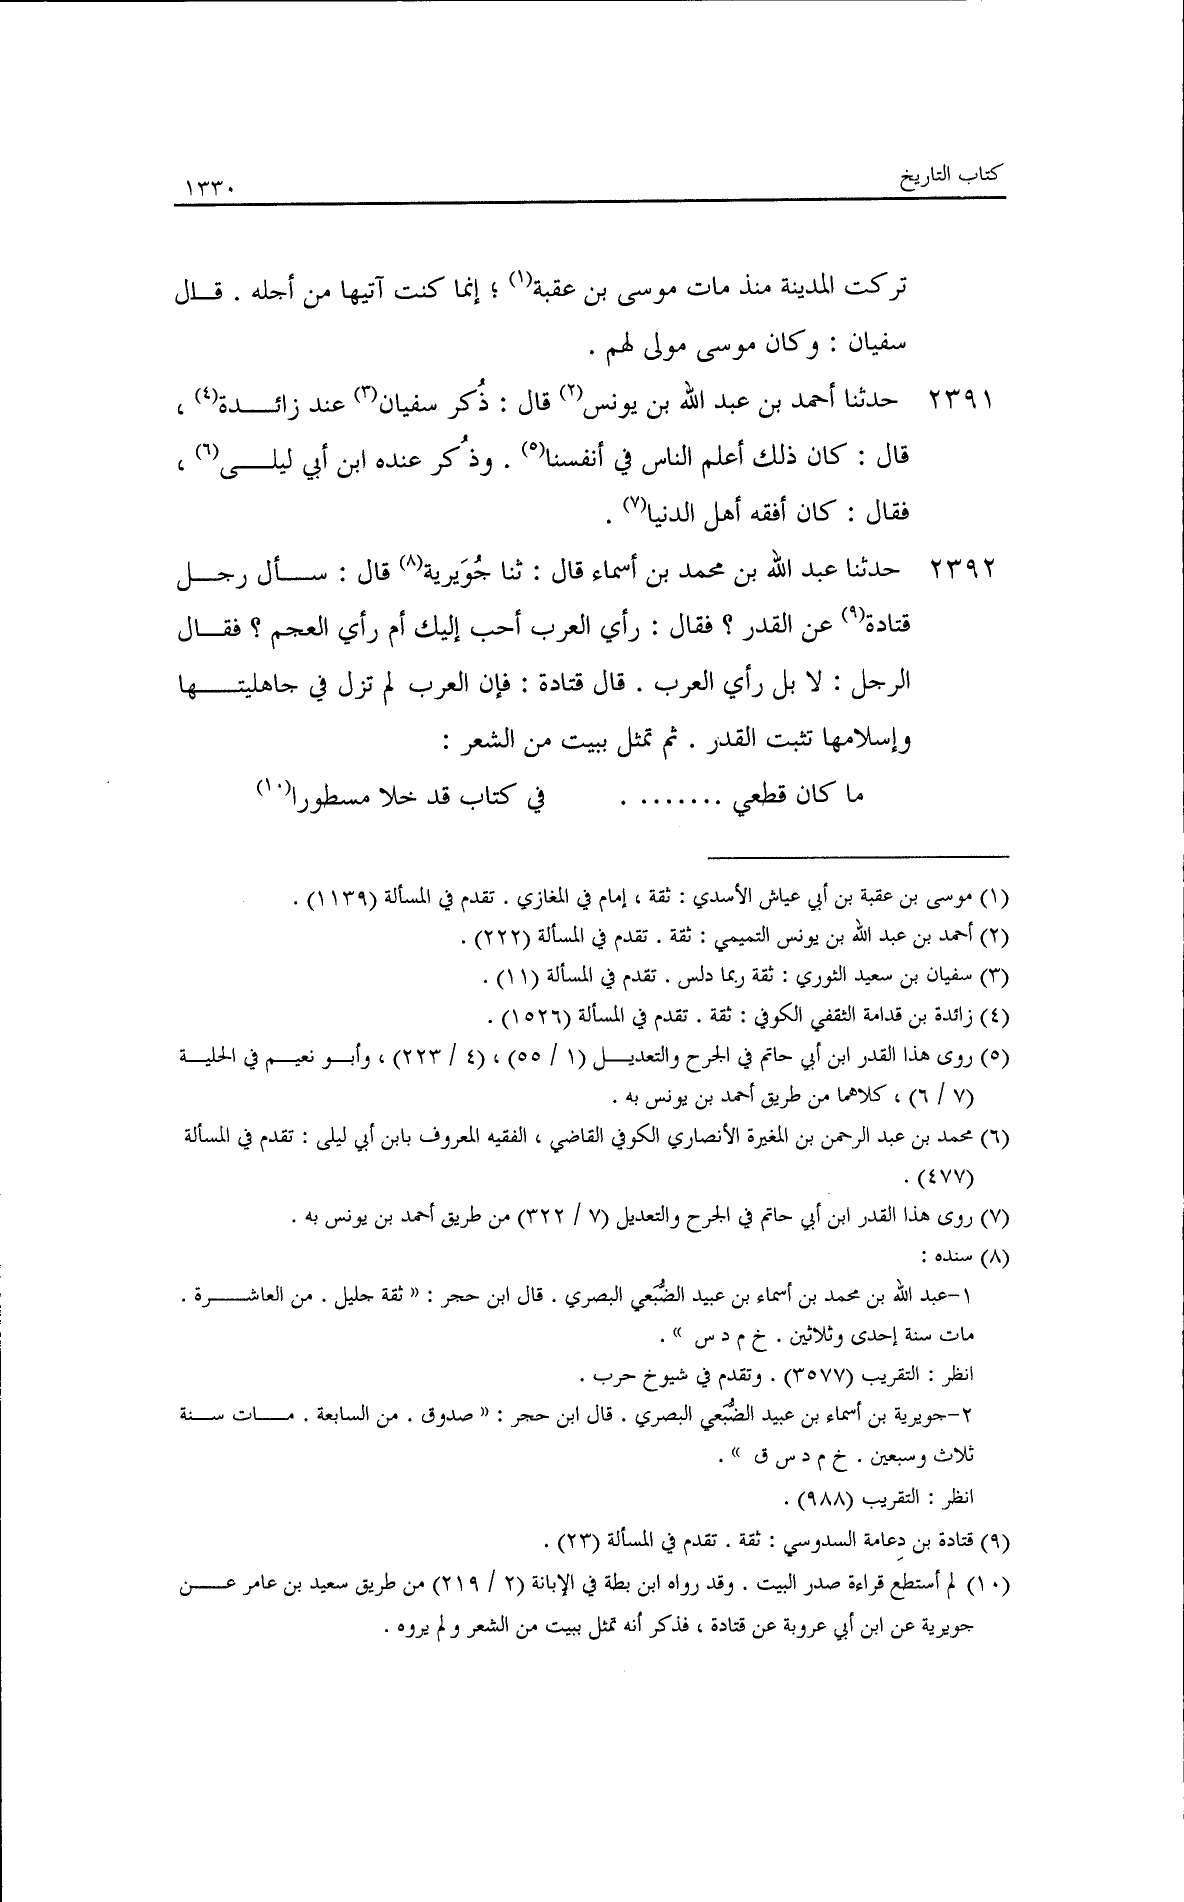 كتاب التاريخ
١٣٣٠
تركت المدينة منذ مات موسى بن عقبة(١) ؛ إنما كنت آتيها من أجله . قــال
سفيان : وكان موسى مولى لهم .
٢٣٩١ حدثنا أحمد بن عبد الله بن يونس(٢) قال : ذُكر سفيان(٣) عند زائــدة(٤) ،
قال : كان ذلك أعلم الناس في أنفسنا(٥) . وذُكر عنده ابن أبي ليلــى(٦) ،
فقال : كان أفقه أهل الدنيا(٧) .
٢٣٩٢ حدثنا عبد الله بن محمد بن أسماء قال : ثنا جُوَيرية(٨) قال : ســأل رجــل
قتادة(٩) عن القدر ؟ فقال : رأي العرب أحب إليك أم رأي العجم ؟ فقــال
الرجل : لا بل رأي العرب . قال قتادة : فإن العرب لم تزل في جاهليتــها
وإسلامها تثبت القدر . ثم تمثل ببيت من الشعر :
ما كان قطعي ....... . في كتاب قد خلا مسطورا(١٠)
(١) موسى بن عقبة بن أبي عياش الأسدي : ثقة ، إمام في المغازي . تقدم في المسألة (١١٣٩) .
(٢) أحمد بن عبد الله بن يونس التميمي : ثقة . تقدم في المسألة (٢٢٢) .
(٣) سفيان بن سعيد الثوري : ثقة ربما دلس . تقدم في المسألة (١١) .
(٤) زائدة بن قدامة الثقفي الكوفي : ثقة . تقدم في المسألة (١٥٢٦) .
(٥) روى هذا القدر ابن أبي حاتم في الجرح والتعديــل (١ / ٥٥) ، (٤ / ٢٢٣) ، وأبــو نعيــم في الحلية
(٧ / ٦) ، كلاهما من طريق أحمد بن يونس به .
(٦) محمد بن عبد الرحمن بن المغيرة الأنصاري الكوفي القاضي ، الفقيه المعروف بابن أبي ليلى : تقدم في المسألة
(٤٧٧) .
(٧) روى هذا القدر ابن أبي حاتم في الجرح والتعديل (٧ / ٣٢٢) من طريق أحمد بن يونس به .
(٨) سنده :
١-عبد الله بن محمد بن أسماء بن عبيد الضُّبَعي البصري . قال ابن حجر : « ثقة جليل . من العاشــرة .
مات سنة إحدى وثلاثين . خ م د س » .
انظر : التقريب (٣٥٧٧) . وتقدم في شيوخ حرب .
٢-جويرية بن أسماء بن عبيد الضُّبَعي البصري . قال ابن حجر : « صدوق . من السابعة . مــات ســنة
ثلاث وسبعين . خ م د س ق » .
انظر : التقريب (٩٨٨) .
(٩) قتادة بن دِعامة السدوسي : ثقة . تقدم في المسألة (٢٣) .
(١٠) لم أستطع قراءة صدر البيت . وقد رواه ابن بطة في الإبانة (٢ / ٢١٩) من طريق سعيد بن عامر عــن
جويرية عن ابن أبي عروبة عن قتادة ، فذكر أنه تمثل ببيت من الشعر ولم يروه .